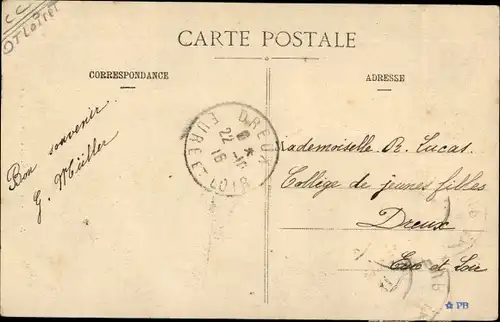 CC
CARTE POSTALE
CORRESPONDANCE
ADRESSE
Bon souvenir
G. Müller
DREUX
22 -11
16
EURE-ET-LOIR
Mademoiselle R. Lucas
Collège de jeunes filles
Dreux
Eure et Loir
PB